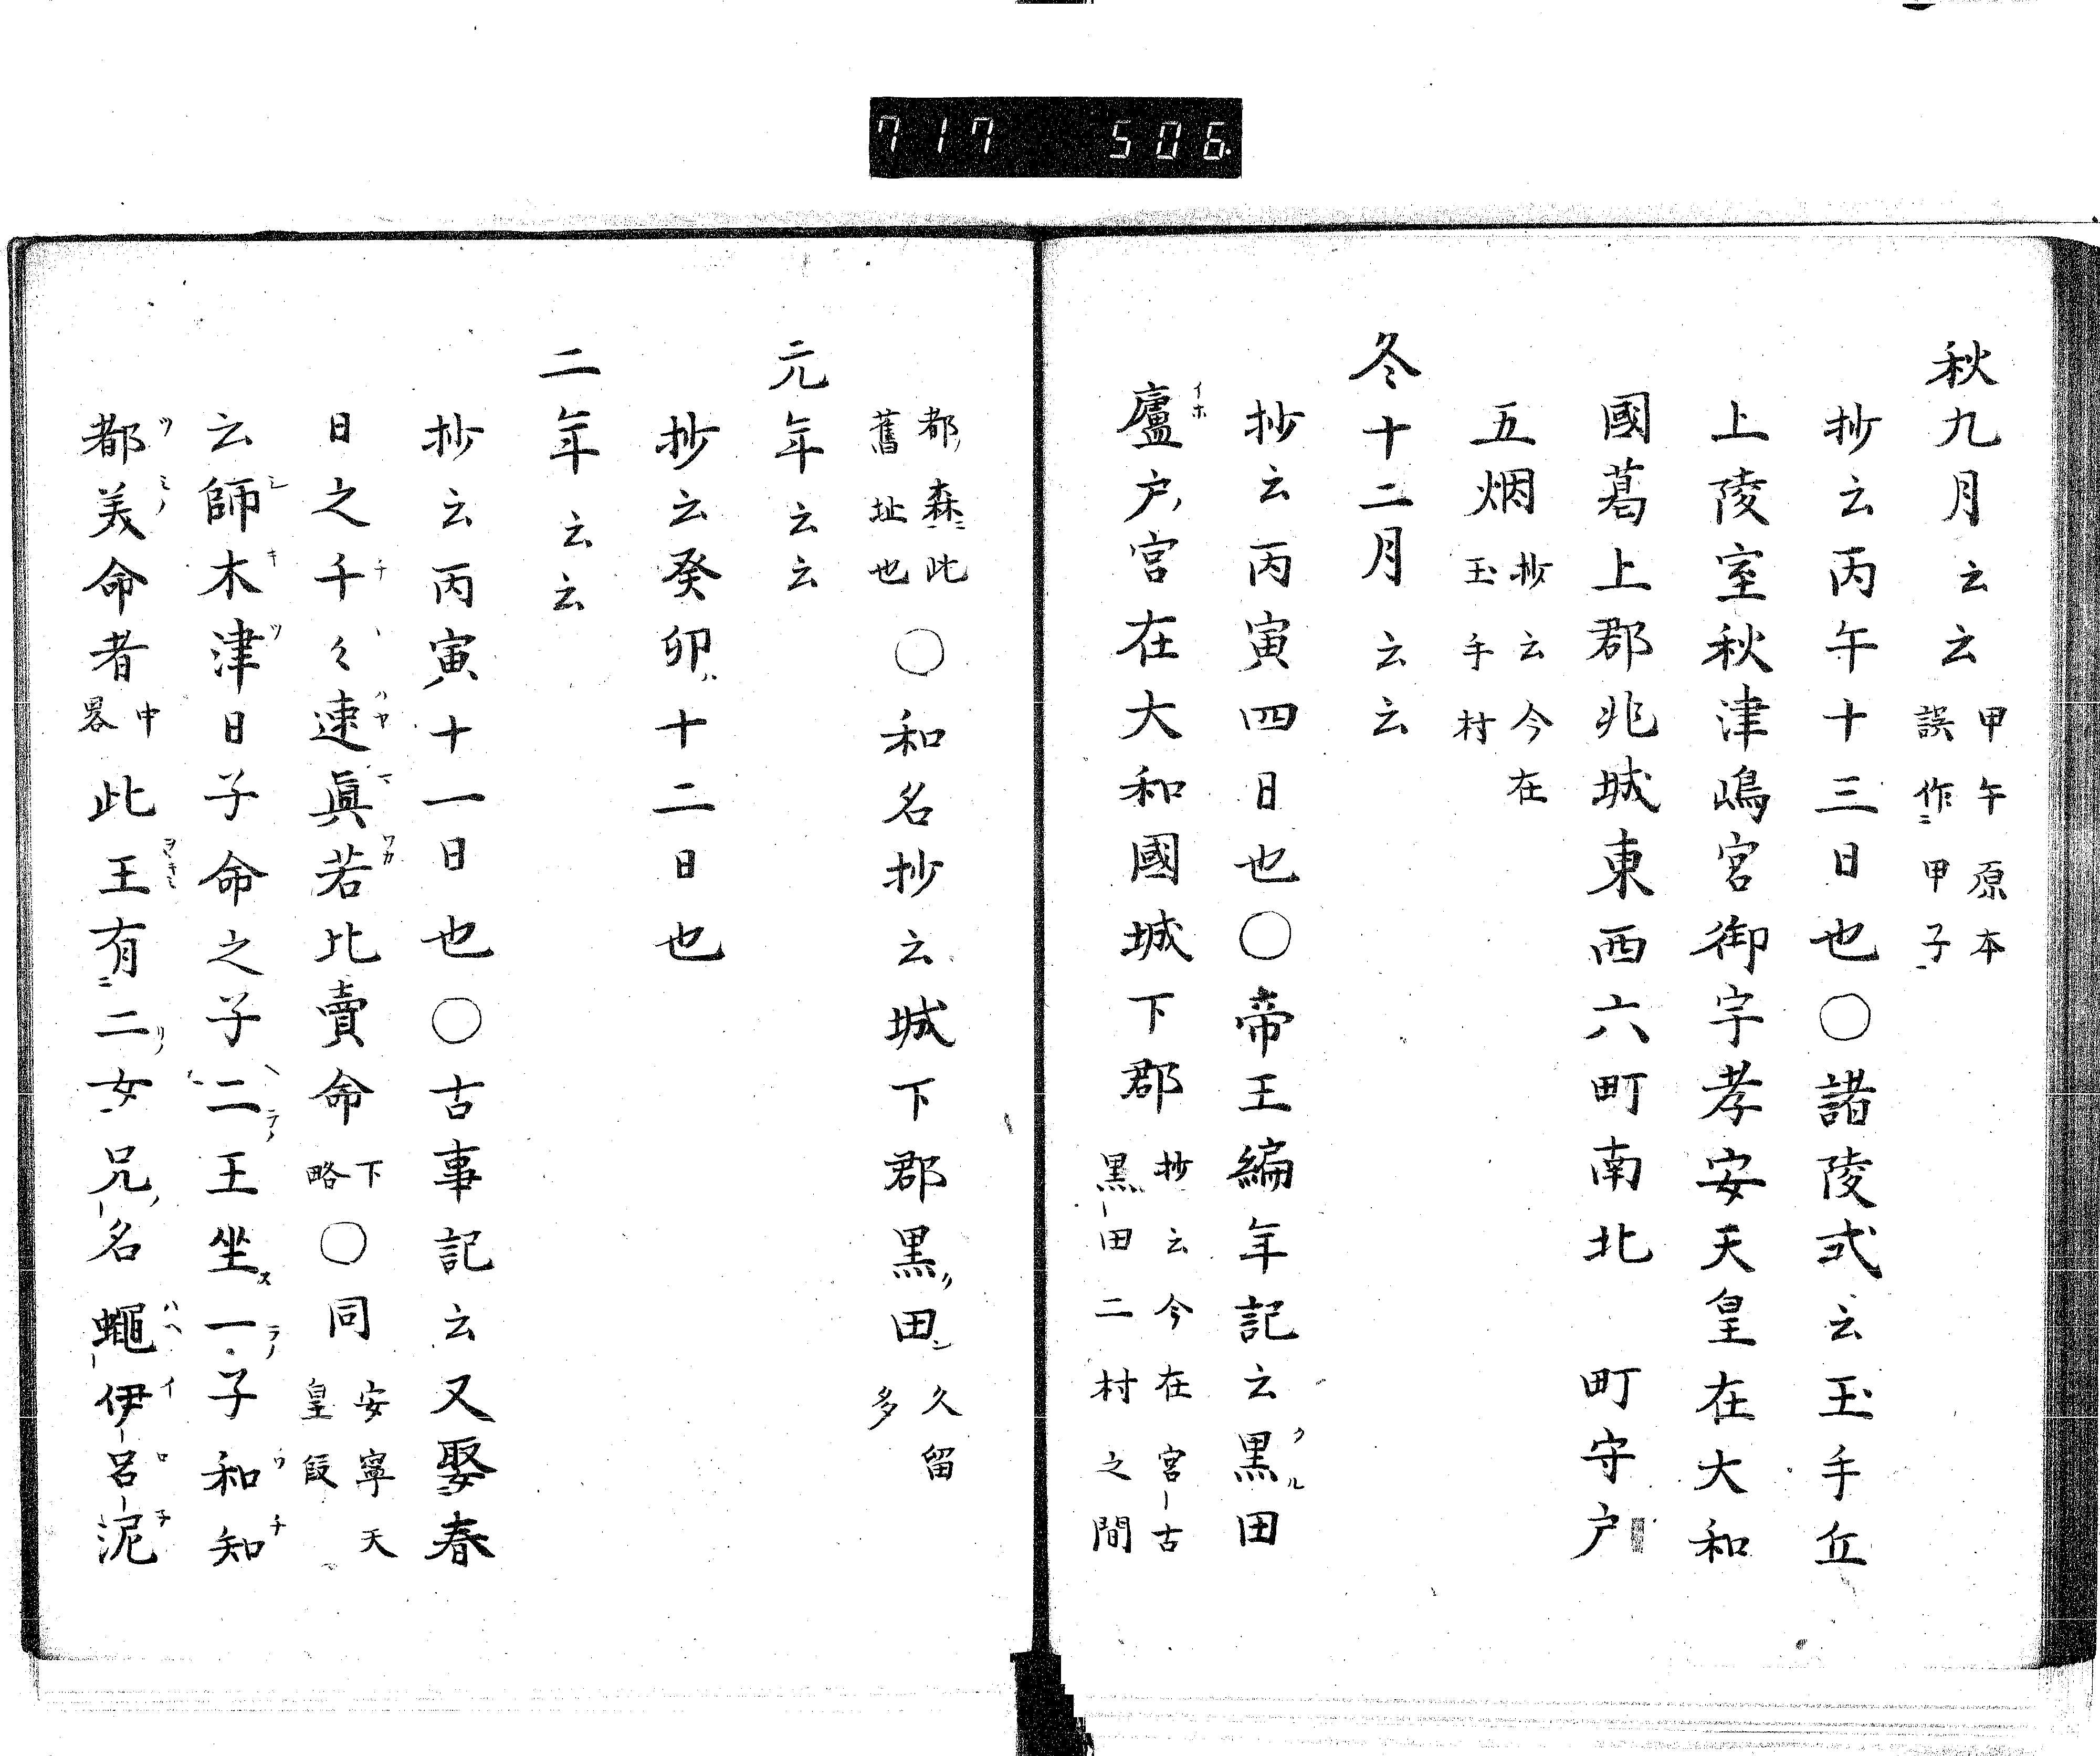 717 506
秋九月云云 甲午原本誤作甲子
抄云丙午十三日也〇諸陵式云玉手丘
上陵室秋津嶋宮御宇孝安天皇在大和
國葛上郡兆城東西六町南北 町守戸
五烟 抄云今在玉手村
冬十二月云云
抄云丙寅四日也〇帝王編年記云黒田
廬戸宮在大和國城下郡 抄云今在宮古黒田二村之間
都森此舊址也〇和名抄云城下郡黒田 久留多
元年云云
抄云癸卯十二日也
二年云云
抄云丙寅十一日也〇古事記云又娶春
日之千々速眞若比賣命 下略〇同 安寧天皇段
云師木津日子命之子二王坐一子和知
都美命者 中畧 此王有二女兄名蠅伊呂泥